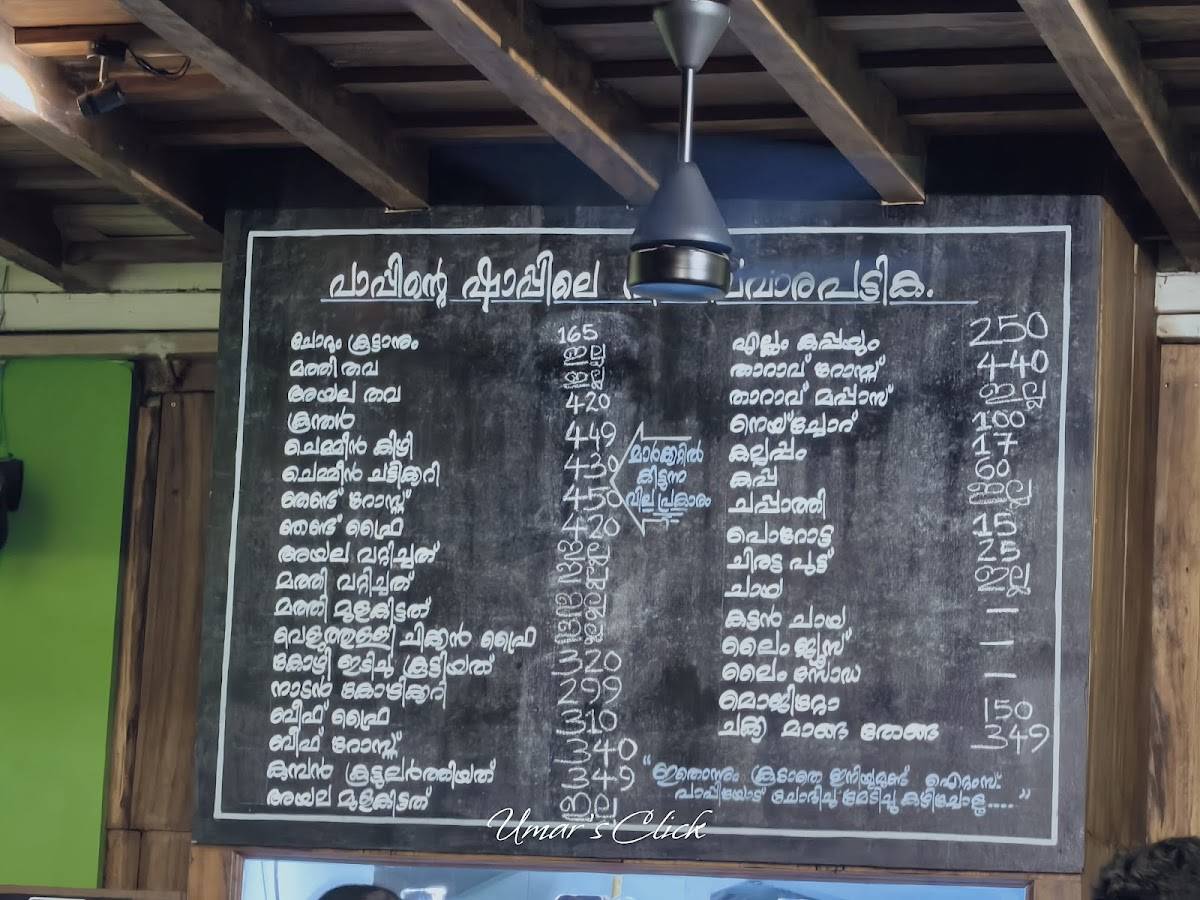 പാപ്പിന്റെ ഷാപ്പിലെ
ചോറും കൂട്ടാനും 165
മത്തി തവ ഇല്ല
അയല തവ ഇല്ല
കൂന്തൾ 420
ചെമ്മീൻ കിഴി 449
ചെമ്മീൻ ചട്ടിക്കറി 430
ഞെണ്ട് റോസ്റ്റ് 450
ഞെണ്ട് ഫ്രൈ 420
അയല വറ്റിച്ചത് ഇല്ല
മത്തി വറ്റിച്ചത് ഇല്ല
മത്തി മുളകിട്ടത് ഇല്ല
വെളുത്തുള്ളി ചിക്കൻ ഫ്രൈ ഇല്ല
കോഴി ഇടിച്ചു കൂട്ടിയത് 320
നാടൻ കോഴിക്കറി 299
ബീഫ് ഫ്രൈ 310
ബീഫ് റോസ്റ്റ് 340
കുമ്പൻ കൂട്ടുലർത്തിയത് 349
അയല മുളകിട്ടത് ഇല്ല
മാർക്കറ്റിൽ
കിട്ടുന്ന
വില പ്രകാരം
എല്ലും കപ്പയും 250
താറാവ് റോസ്റ്റ് 440
താറാവ് മപ്പാസ് ഇല്ല
നെയ്ച്ചോറ് 100
കല്ലപ്പം 17
കപ്പ 60
ചപ്പാത്തി ഇല്ല
പൊറോട്ട 15
ചിരട്ട പുട്ട് 25
ചായ ഇല്ല
കട്ടൻ ചായ —
ലൈം ജ്യൂസ് —
ലൈം സോഡ —
മൊജിറ്റോ 150
ചക്ക മാങ്ങ തേങ്ങ 349
"ഇതൊന്നും കൂടാതെ ഇനിയുമുണ്ട് ഐറ്റംസ്.
പാപ്പിയോട് ചോദിച്ചു മേടിച്ചു കഴിച്ചോളൂ....."
Umar's Click